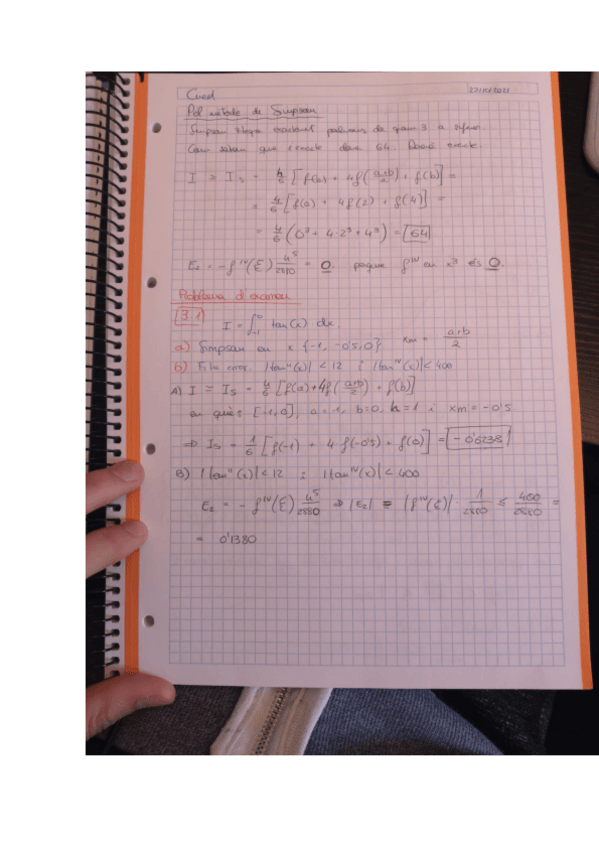 22/XI/2021
Pel mètode de Simpson
Simpson integra exactament polinomis de grau 3 o
Com sabem que l'exacte dona 64. Donarà exacte.
I ≃ I_s = h/6 [f(a) + 4f((a+b)/2) + f(b)] =
= 4/6 [f(0) + 4f(2) + f(4)] =
= 4/6 (0³ + 4·2³ + 4³) = 64
E_s = -f^IV(ξ) 4⁵/2880 = 0. perquè f^IV en x³ és 0.
Problema d'examen
3.1 I = ∫₋₁⁰ tan(x) · dx
a) Simpson en x {-1, -0'5, 0} xm = (a+b)/2
b) Fita error. |tan''(x)| < 12 i |tan^IV(x)| < 400
A) I ≃ I_s = h/6 [f(a) + 4f((a+b)/2) + f(b)]
[-1,0], a=-1, b=0, h=1 i xm = -0'5
⇒ I_s = 1/6 [f(-1) + 4·f(-0'5) + f(0)] = -0'6238
B) |tan''(x)| < 12 i |tan^IV(x)| < 400
E_s = -f^IV(ξ) 4⁵/2880 ⇒ |E_s| = |f^IV(ξ)| · 1/2880 ≤ 400/2880 =
= 0'1380